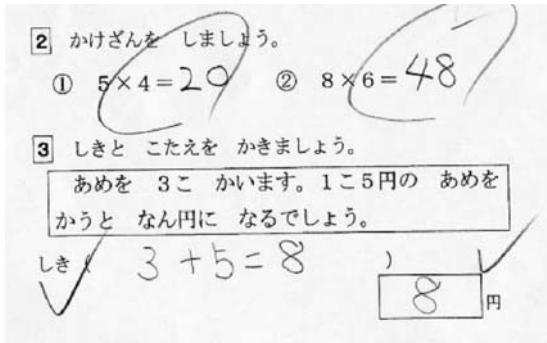 2 かけざんを しましょう。
① 5×4=20 ② 8×6=48
3 しきと こたえを かきましょう。
あめを 3こ かいます。1こ5円の あめを
かうと なん円に なるでしょう。
しき( 3+5=8 )
8円